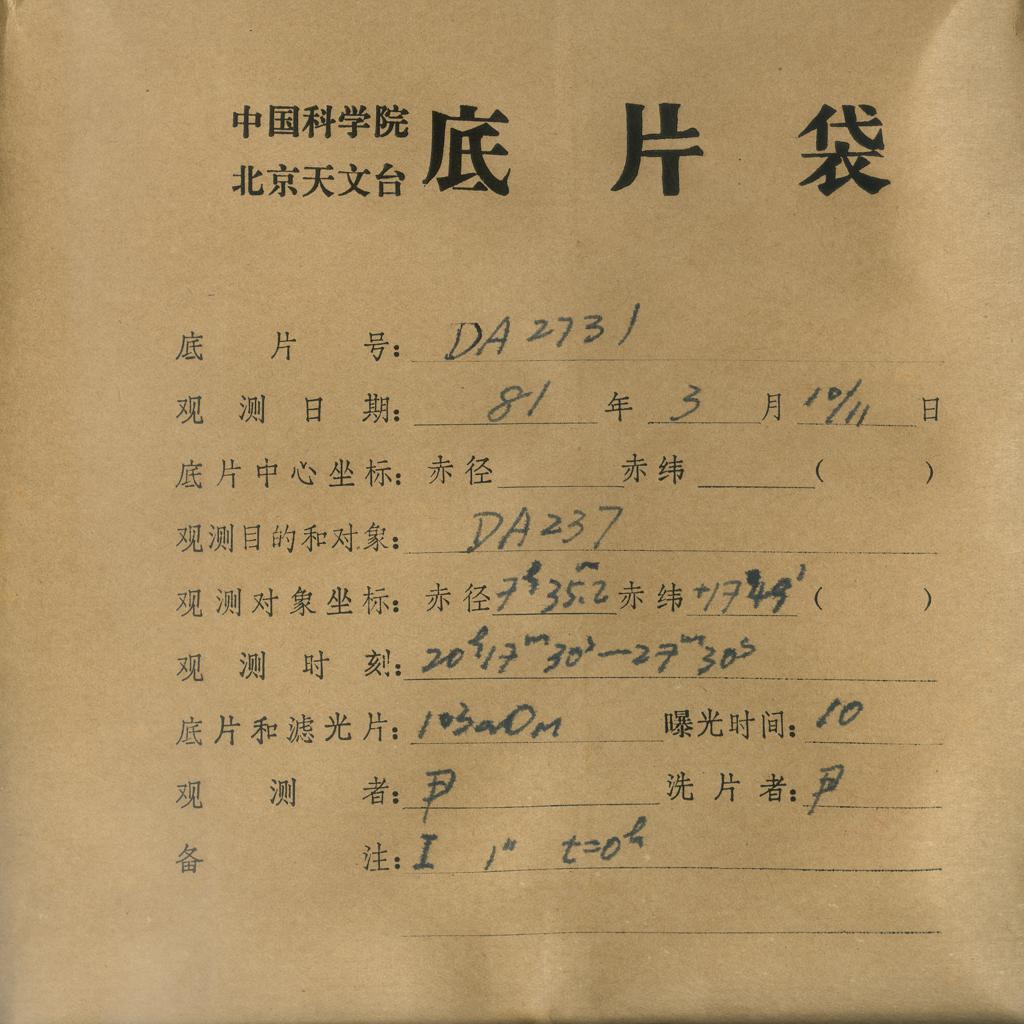 中国科学院
北京天文台 底片袋
底片号: DA2731
观测日期: 81 年 3 月 10/11 日
底片中心坐标: 赤径 赤纬 ( )
观测目的和对象: DA237
观测对象坐标: 赤径 7h35.2m 赤纬 +17°49′ ( )
观测时刻: 20h17m30s—27m30s
底片和滤光片: 103aO 曝光时间: 10
观测者: 尹 洗片者: 尹
备注: I 1" t=0h